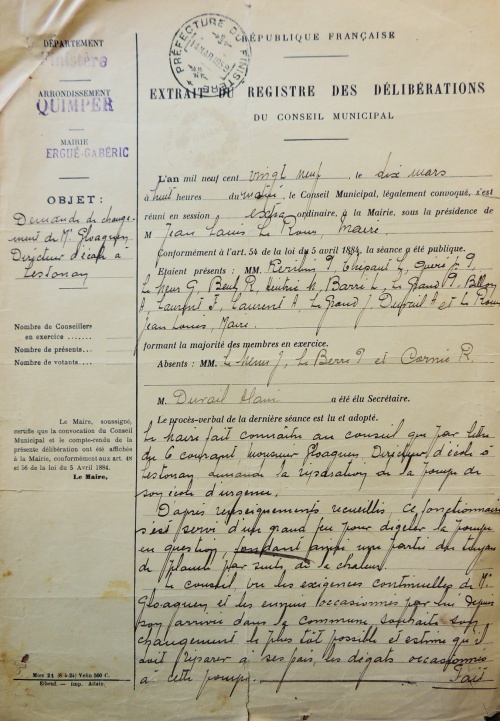 DÉPARTEMENT
Finistère
ARRONDISSEMENT
QUIMPER
MAIRIE
ERGUÉ-GABÉRIC
OBJET :
Demande de change-
ment de Mr Gloaguen
Directeur d'école à
Lestonan
Nombre de Conseillers
en exercice .......
Nombre de présents...
Nombre de votants....
Le Maire, soussigné,
certifie que la convocation du Conseil
Municipal et le compte-rendu de la
présente délibération ont été affichés
à la Mairie, conformément aux art. 48
et 56 de la loi du 5 Avril 1884.
Le Maire,
PRÉFECTURE DU FINISTÈRE
RÉPUBLIQUE FRANÇAISE
EXTRAIT DU REGISTRE DES DÉLIBÉRATIONS
DU CONSEIL MUNICIPAL
L'an mil neuf cent vingt neuf, le dix mars
à huit heures du matin, le Conseil Municipal, légalement convoqué, s'est
réuni en session extra ordinaire, à la Mairie, sous la présidence de
M Jean Louis Le Roux, Maire.
Conformément à l'art. 54 de la loi du 5 avril 1884, la séance a été publique.
Etaient présents : MM.
Barré L, Le Grand
Laurent J, Laurent A, Le Grand J et Le Roux
Jean Louis, Maire.
formant la majorité des membres en exercice.
Absents : MM. Le Berre et
M. Alain a été élu Secrétaire.
Le procès-verbal de la dernière séance est lu et adopté.
Le Maire fait connaître au conseil que par lettre
du 6 courant monsieur Gloaguen, Directeur d'école à
Lestonan demande la réparation de la pompe de
son école d'urgence.
D'après renseignements recueillis ce fonctionnaire
s'est servi d'un grand feu pour dégeler la pompe
en question, fondant ainsi une partie des tuyaux
de plomb par suite de la chaleur.
Le conseil, vu les exigences continuelles de Mr
Gloaguen et les ennuis occasionnés par lui depuis
son arrivée dans la commune, souhaite son
changement le plus tôt possible et estime qu'il
doit réparer à ses frais, les dégats occasionnés
à cette pompe. Fait